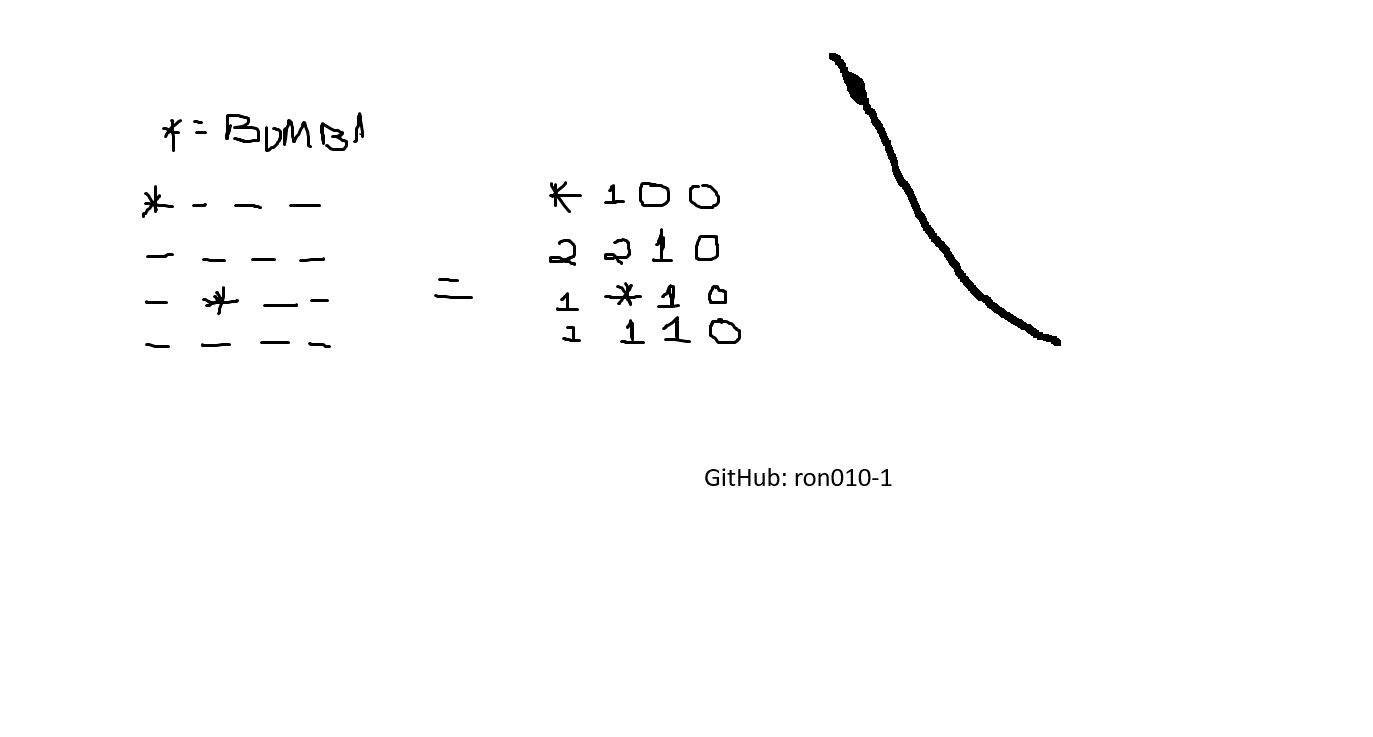 * = BOMBA
* - - - = * 1 0 0
- - - - 2 2 1 0
- * - - 1 * 1 0
- - - - 1 1 1 0
GitHub: ron010-1